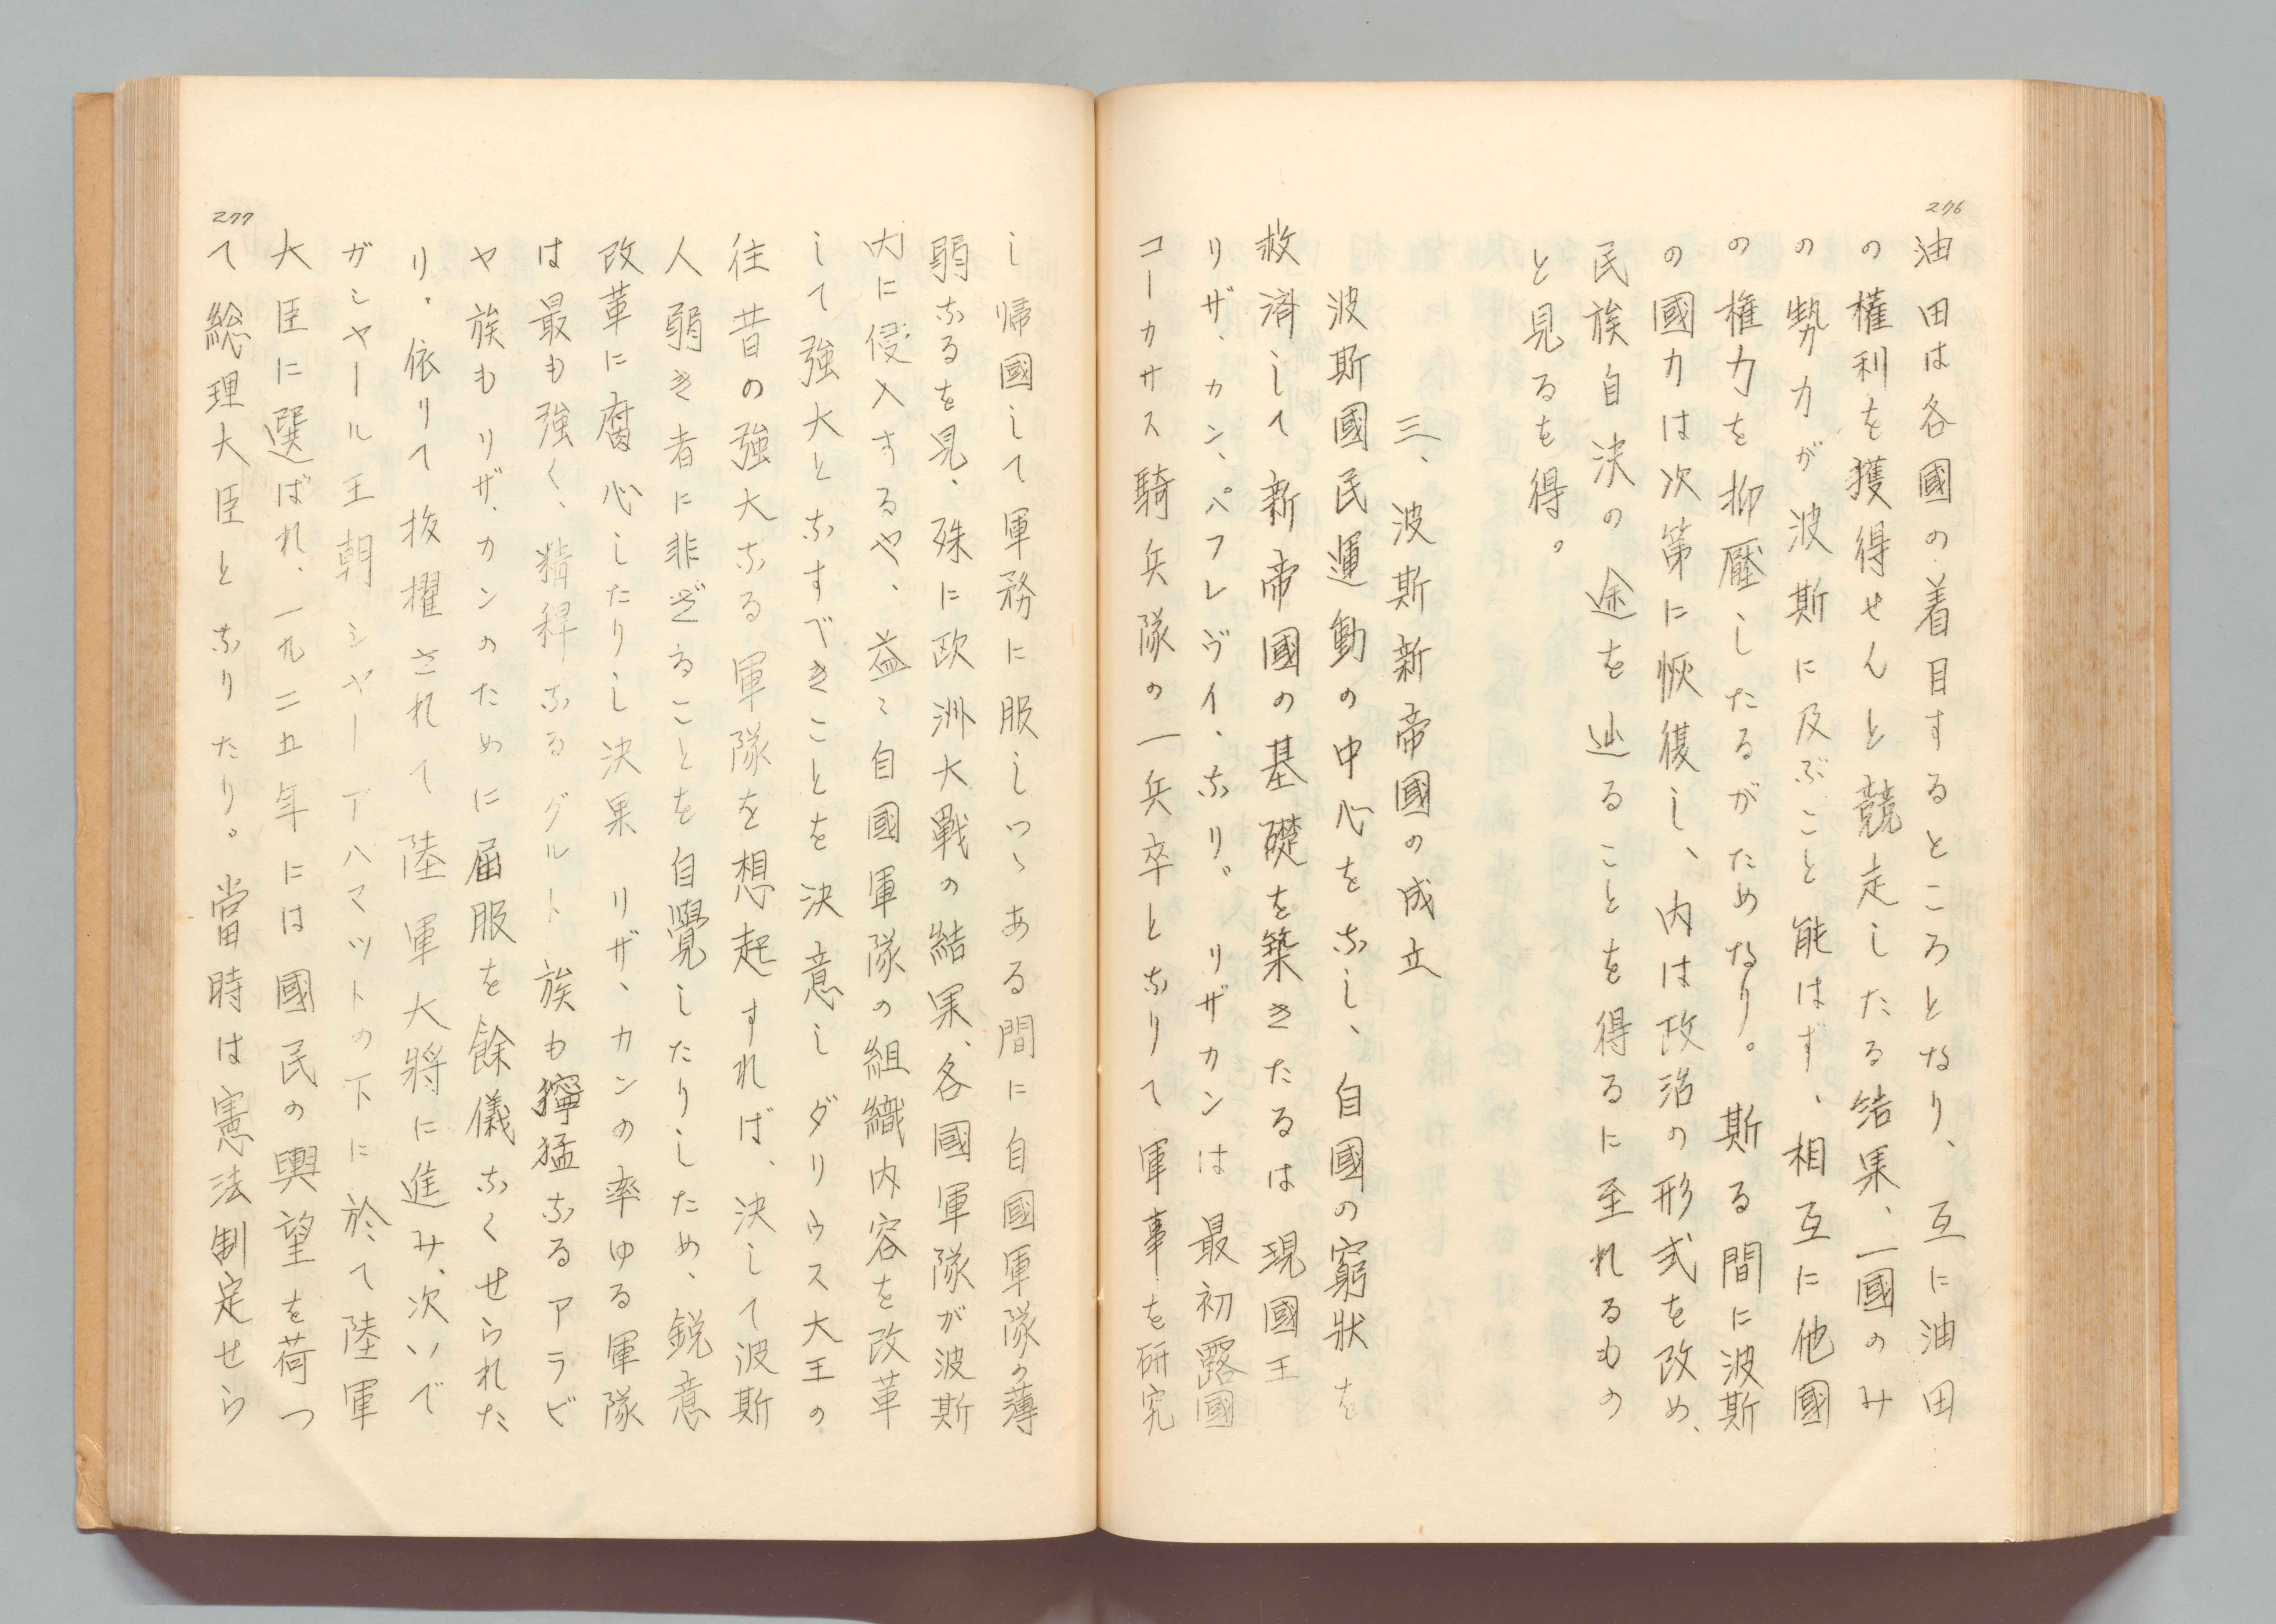 276
油田は各國の着目するところとなり、互に油田
の權利を獲得せんと競走したる結果、一國のみ
の勢力が波斯に及ぶこと能はず、相互に他國
の権力を抑壓したるがためなり。斯る間に波斯
の國力は次第に恢復し、内は政治の形式を改め、
民族自決の途を辿ることを得るに至れるもの
と見るを得。
三、波斯新帝國の成立
波斯國民運動の中心をなし、自國の窮狀を
救済して新帝國の基礎を築きたるは現國王
リザ、カン、パフレヴイ、なり。リザカンは最初露國
コーカサス騎兵隊の一兵卒となりて軍事を研究
し帰國して軍務に服しつゝある間に自國軍隊の薄
弱なるを見、殊に欧洲大戰の結果、各國軍隊が波斯
内に侵入するや、益〻自國軍隊の組織内容を改革
して強大となすべきことを決意し ダリウス大王の
往昔の強大なる軍隊を想起すれば、決して波斯
人弱き者に非ざることを自覺したりしため、鋭意
改革に腐心したりし決果 リザ、カンの率ゆる軍隊
は最も強く、精稈なるグルト族も獰猛なるアラビ
ヤ族もリザ、カンのために屆服を餘儀なくせられた
り。依りて抜擢されて陸軍大將に進み、次いで
ガシヤール王朝シヤーアハマツトの下に於て陸軍
大臣に選ばれ、一九二五年には國民の輿望を荷つ
て総理大臣となりたり。當時は憲法制定せら
277